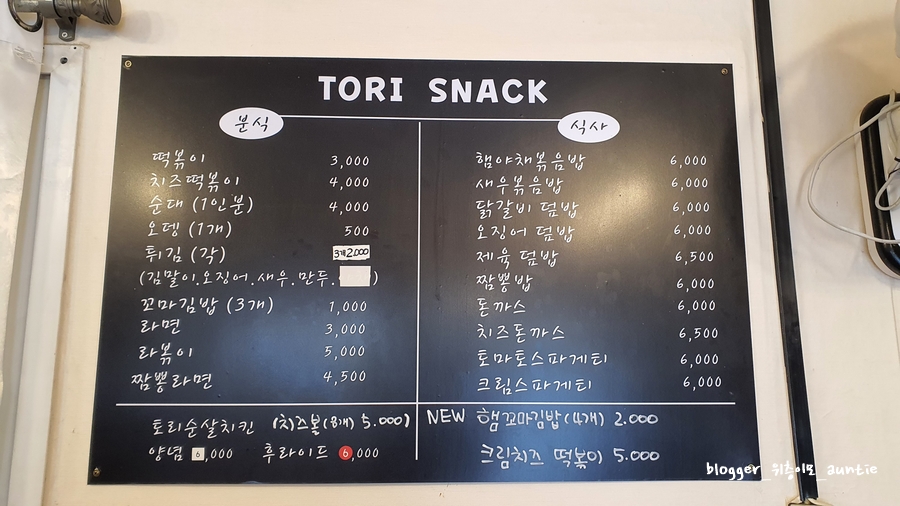 TORI SNACK
분식
떡볶이 3,000
치즈떡볶이 4,000
순대 (1인분) 4,000
오뎅 (1개) 500
튀김 (각) 3개 2000
(김말이.오징어.새우.만두. )
꼬마김밥 (3개) 1,000
라면 3,000
라볶이 5,000
짬뽕라면 4,500
식사
햄야채볶음밥 6,000
새우볶음밥 6,000
닭갈비 덮밥 6,000
오징어 덮밥 6,000
제육 덮밥 6,500
짬뽕밥 6,000
돈까스 6,000
치즈돈까스 6,500
토마토스파게티 6,000
크림스파게티 6,000
토리순살치킨 (치즈볼(8개) 5.000)
양념 6,000 후라이드 6,000
NEW 햄꼬마김밥(4개) 2.000
크림치즈 떡볶이 5.000
blogger_위층이모_auntie